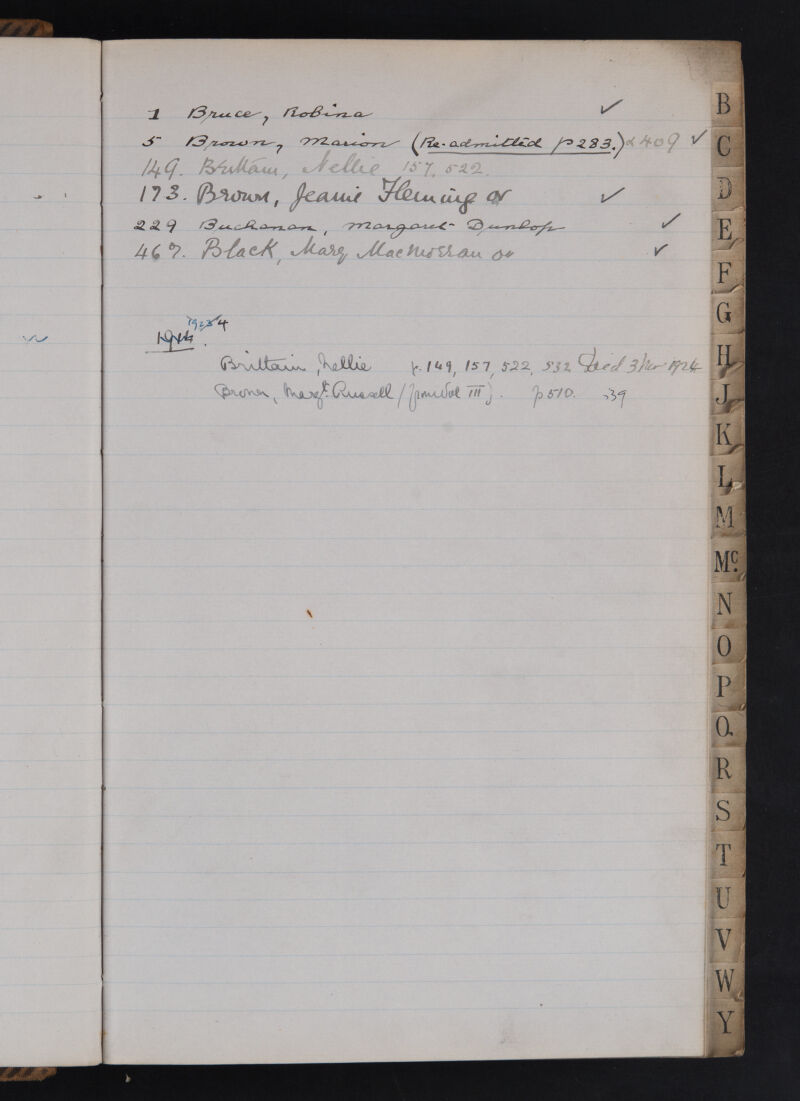 1 Bruce, Robina ✓
5 Brown, Marion (Re-admitted p283.) & 409 ✓
149. Brittain, Nellie 157, 522.
173. Brown, Jeanie Fleming or ✓
229 Buchanan, Margaret Dunlop ✓
467. Black, Mary MacMorran or ✓
1923 4
Brittain, Nellie p. 149, 157, 522, 532 Died 3 Nov 1924
Brown, Margt. Russell (from Vol III). p510. 539
B
C
D
E
F
G
H
J
K
L
M
Mc.
N
O
P
Q.
R
S
T
U
V
W
Y